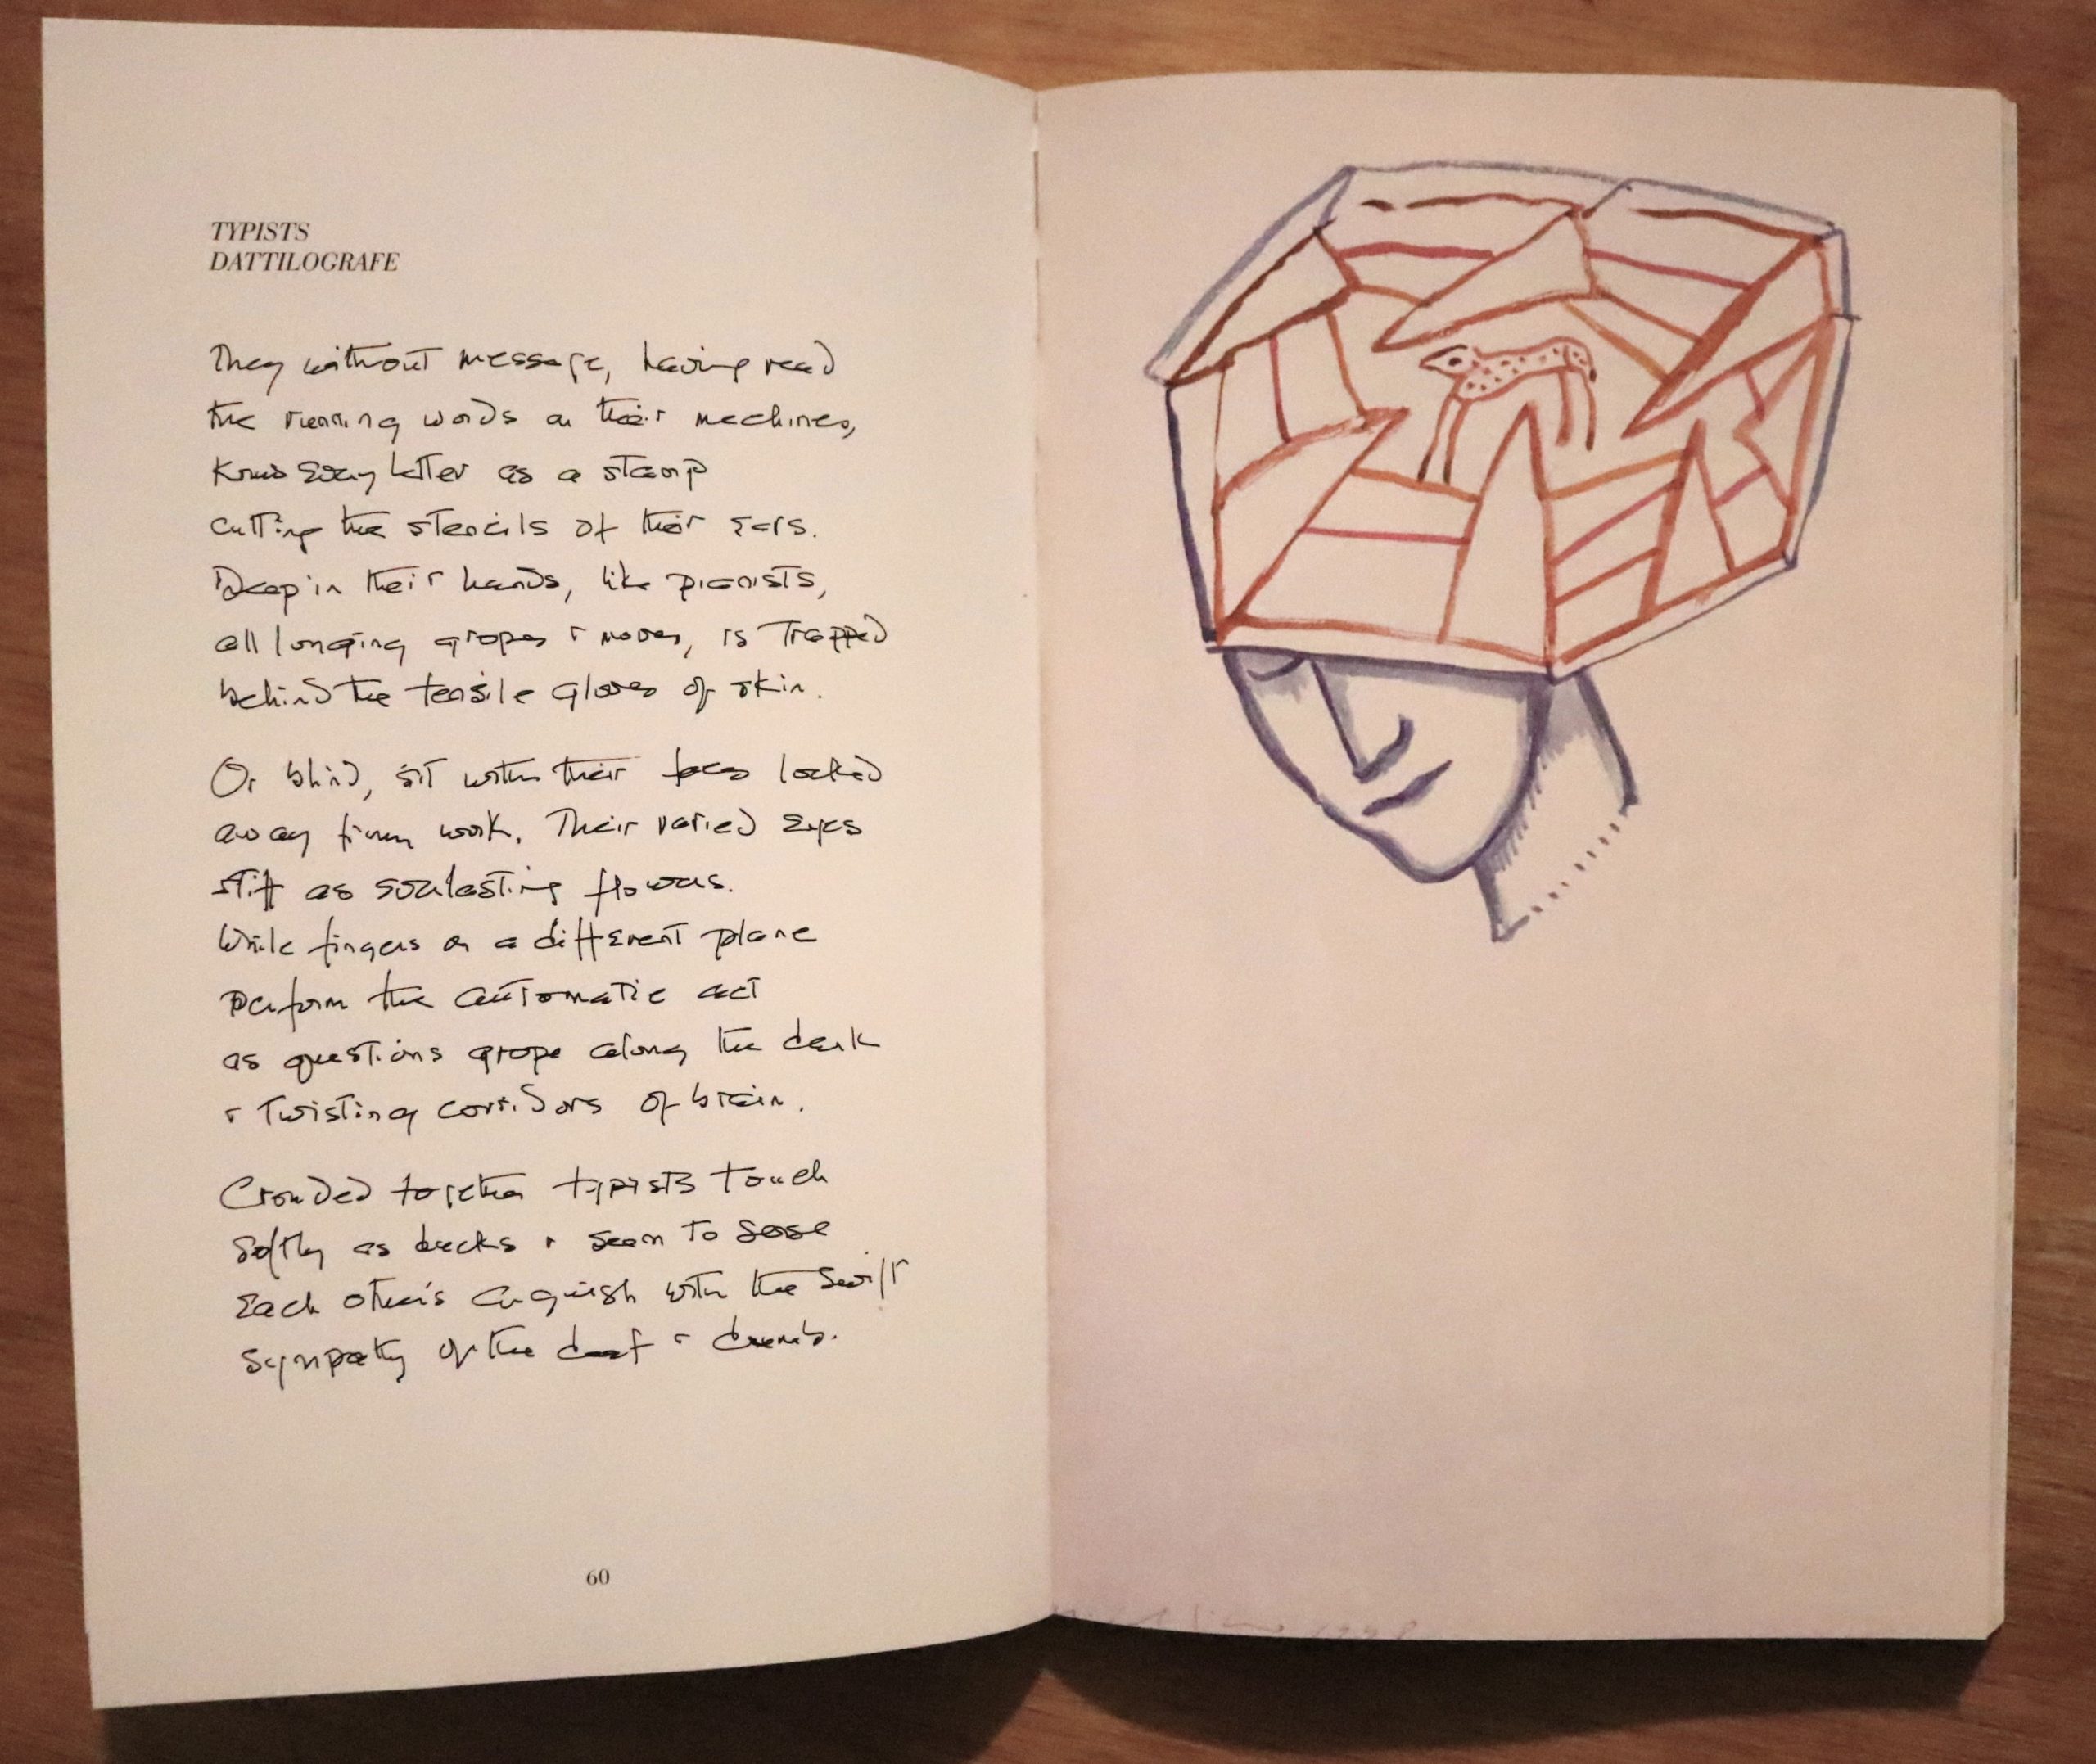 TYPISTS
DATTILOGRAFE
They without message, having read
the running words on their machines,
know every letter as a stamp
cutting the stencils of their ears.
Deep in their hands, like pianists,
all longing gropes & moves, is trapped
behind the tensile gloves of skin.
Or blind, sit with their faces locked
away from work. Their varied eyes
stiff as everlasting flowers.
While fingers on a different plane
perform the automatic act
as questions grope along the dark
& twisting corridors of brain.
Crowded together typists touch
softly as ducks & seem to sense
each other's anguish with the swift
sympathy of the deaf & dumb.
60